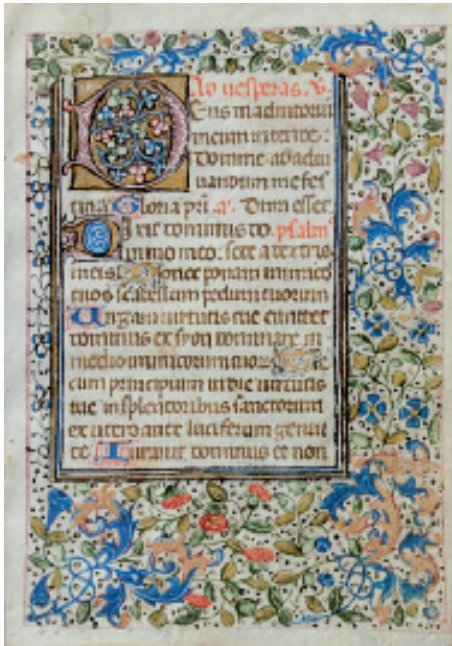 Ad vesperas. V.
Deus in adiutoriū
meum intende.
Domine ad adiu
uandum me fes
tina. Gloria pri. a. Dum esset
Dixit dominus do. psalm
mino meo: sede a dextris
meis. Donec ponam inimicos
tuos scabellum pedum tuorum
Virgam virtutis tue emittet
dominus ex syon dominare in
medio inimicorum tuor. Te
cum principium in die virtutis
tue in splendoribus sanctorum
ex utero ante luciferum genui
te. Iurauit dominus et non